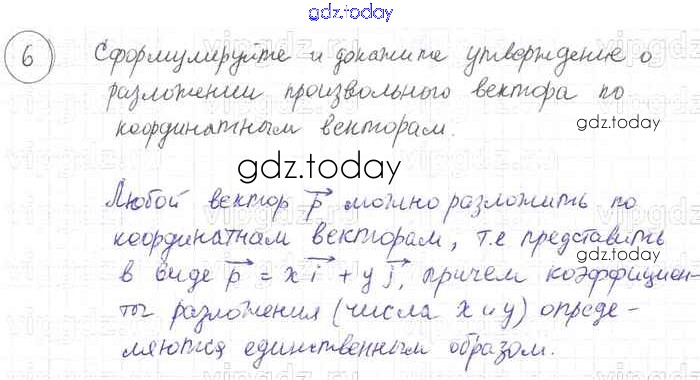 gdz.today
6 Сформулируйте и докажите утверждение о
разложении произвольного вектора по
координатным векторам.
gdz.today
gdz.today
Любой вектор p можно разложить по
координатам векторам, т.е представить
в виде p = x i + y j, причем коэффициен-
ты разложения (числа x и y) опреде-
ляются единственным образом.